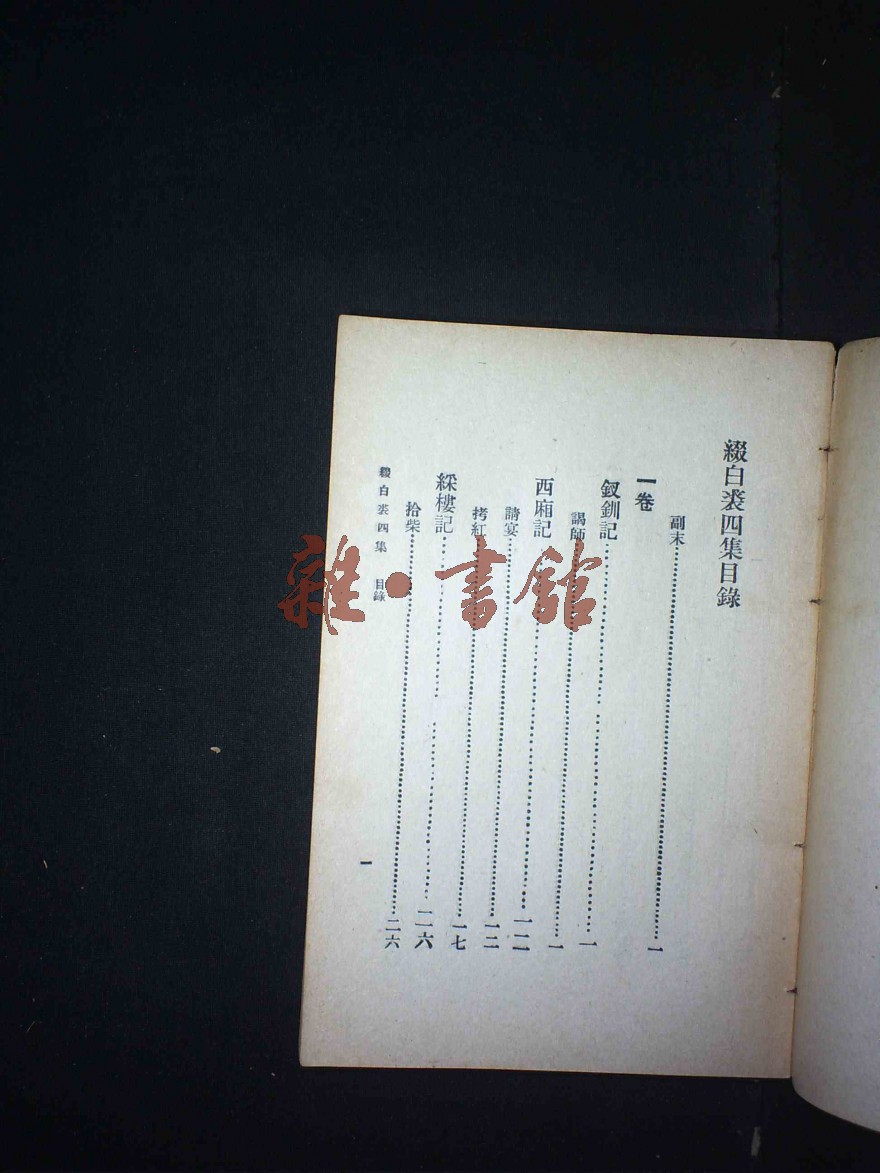 綴白裘四集目錄
副末……一
一卷
釵釧記……一
謁師……一
西廂記……一二
請宴……一二
拷紅……一七
綵樓記……二六
拾柴……二六
綴白裘四集 目錄
一
雜·書館